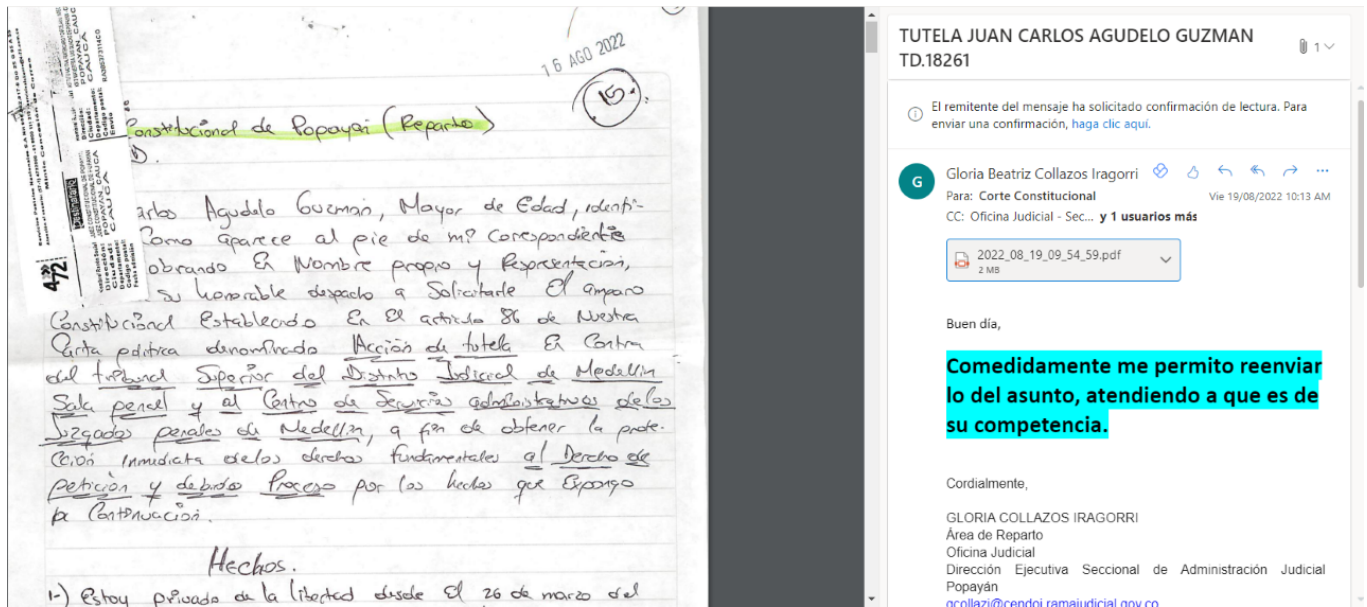 16 AGO 2022
15.
Constitucional de Popayán (Reparto)
arlos Agudelo Guzmán, Mayor de Edad, identi-
Como aparece al pie de mi Correspondiente
obrando En Nombre propio y Representación,
su honorable despacho a Solicitarle El amparo
Constitucional Establecido En El articulo 86 de Nuestra
Carta politica denominado Acción de tutela En Contra
del tribunal Superior del Distrito Judicial de Medellin
Sala penal y al Centro de Servicios administrativos de los
Juzgados penales de Medellin, a fin de obtener la prote-
cción inmediata de los derechos fundamentales al Derecho de
petición y debido Proceso por los hechos que Expongo
a Continuación.
Hechos.
1-) Estoy privado de la libertad desde El 26 de marzo del
472
Destinatario
POPAYAN, CAUCA
CAUCA
TUTELA JUAN CARLOS AGUDELO GUZMAN
TD.18261
1
El remitente del mensaje ha solicitado confirmación de lectura. Para
enviar una confirmación, haga clic aquí.
G
Gloria Beatriz Collazos Iragorri
Para: Corte Constitucional
Vie 19/08/2022 10:13 AM
CC: Oficina Judicial - Sec... y 1 usuarios más
2022_08_19_09_54_59.pdf
2 MB
Buen día,
Comedidamente me permito reenviar
lo del asunto, atendiendo a que es de
su competencia.
Cordialmente,
GLORIA COLLAZOS IRAGORRI
Área de Reparto
Oficina Judicial
Dirección Ejecutiva Seccional de Administración Judicial
Popayán
gcollazi@cendoj.ramajudicial.gov.co